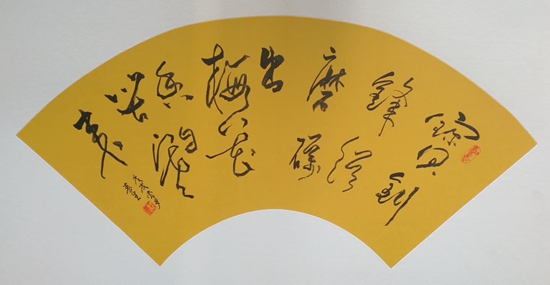 寶劍
鋒從
磨礪
出
梅花
香自
苦寒
来